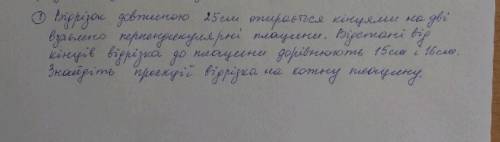 ① Відрізок довжиною 25см опирається кінцями на дві
взаємно перпендикулярні площини. Відстані від
кінців відрізка до площини дорівнюють 15см і 16см.
Знайдіть проекції відрізка на кожну площину.